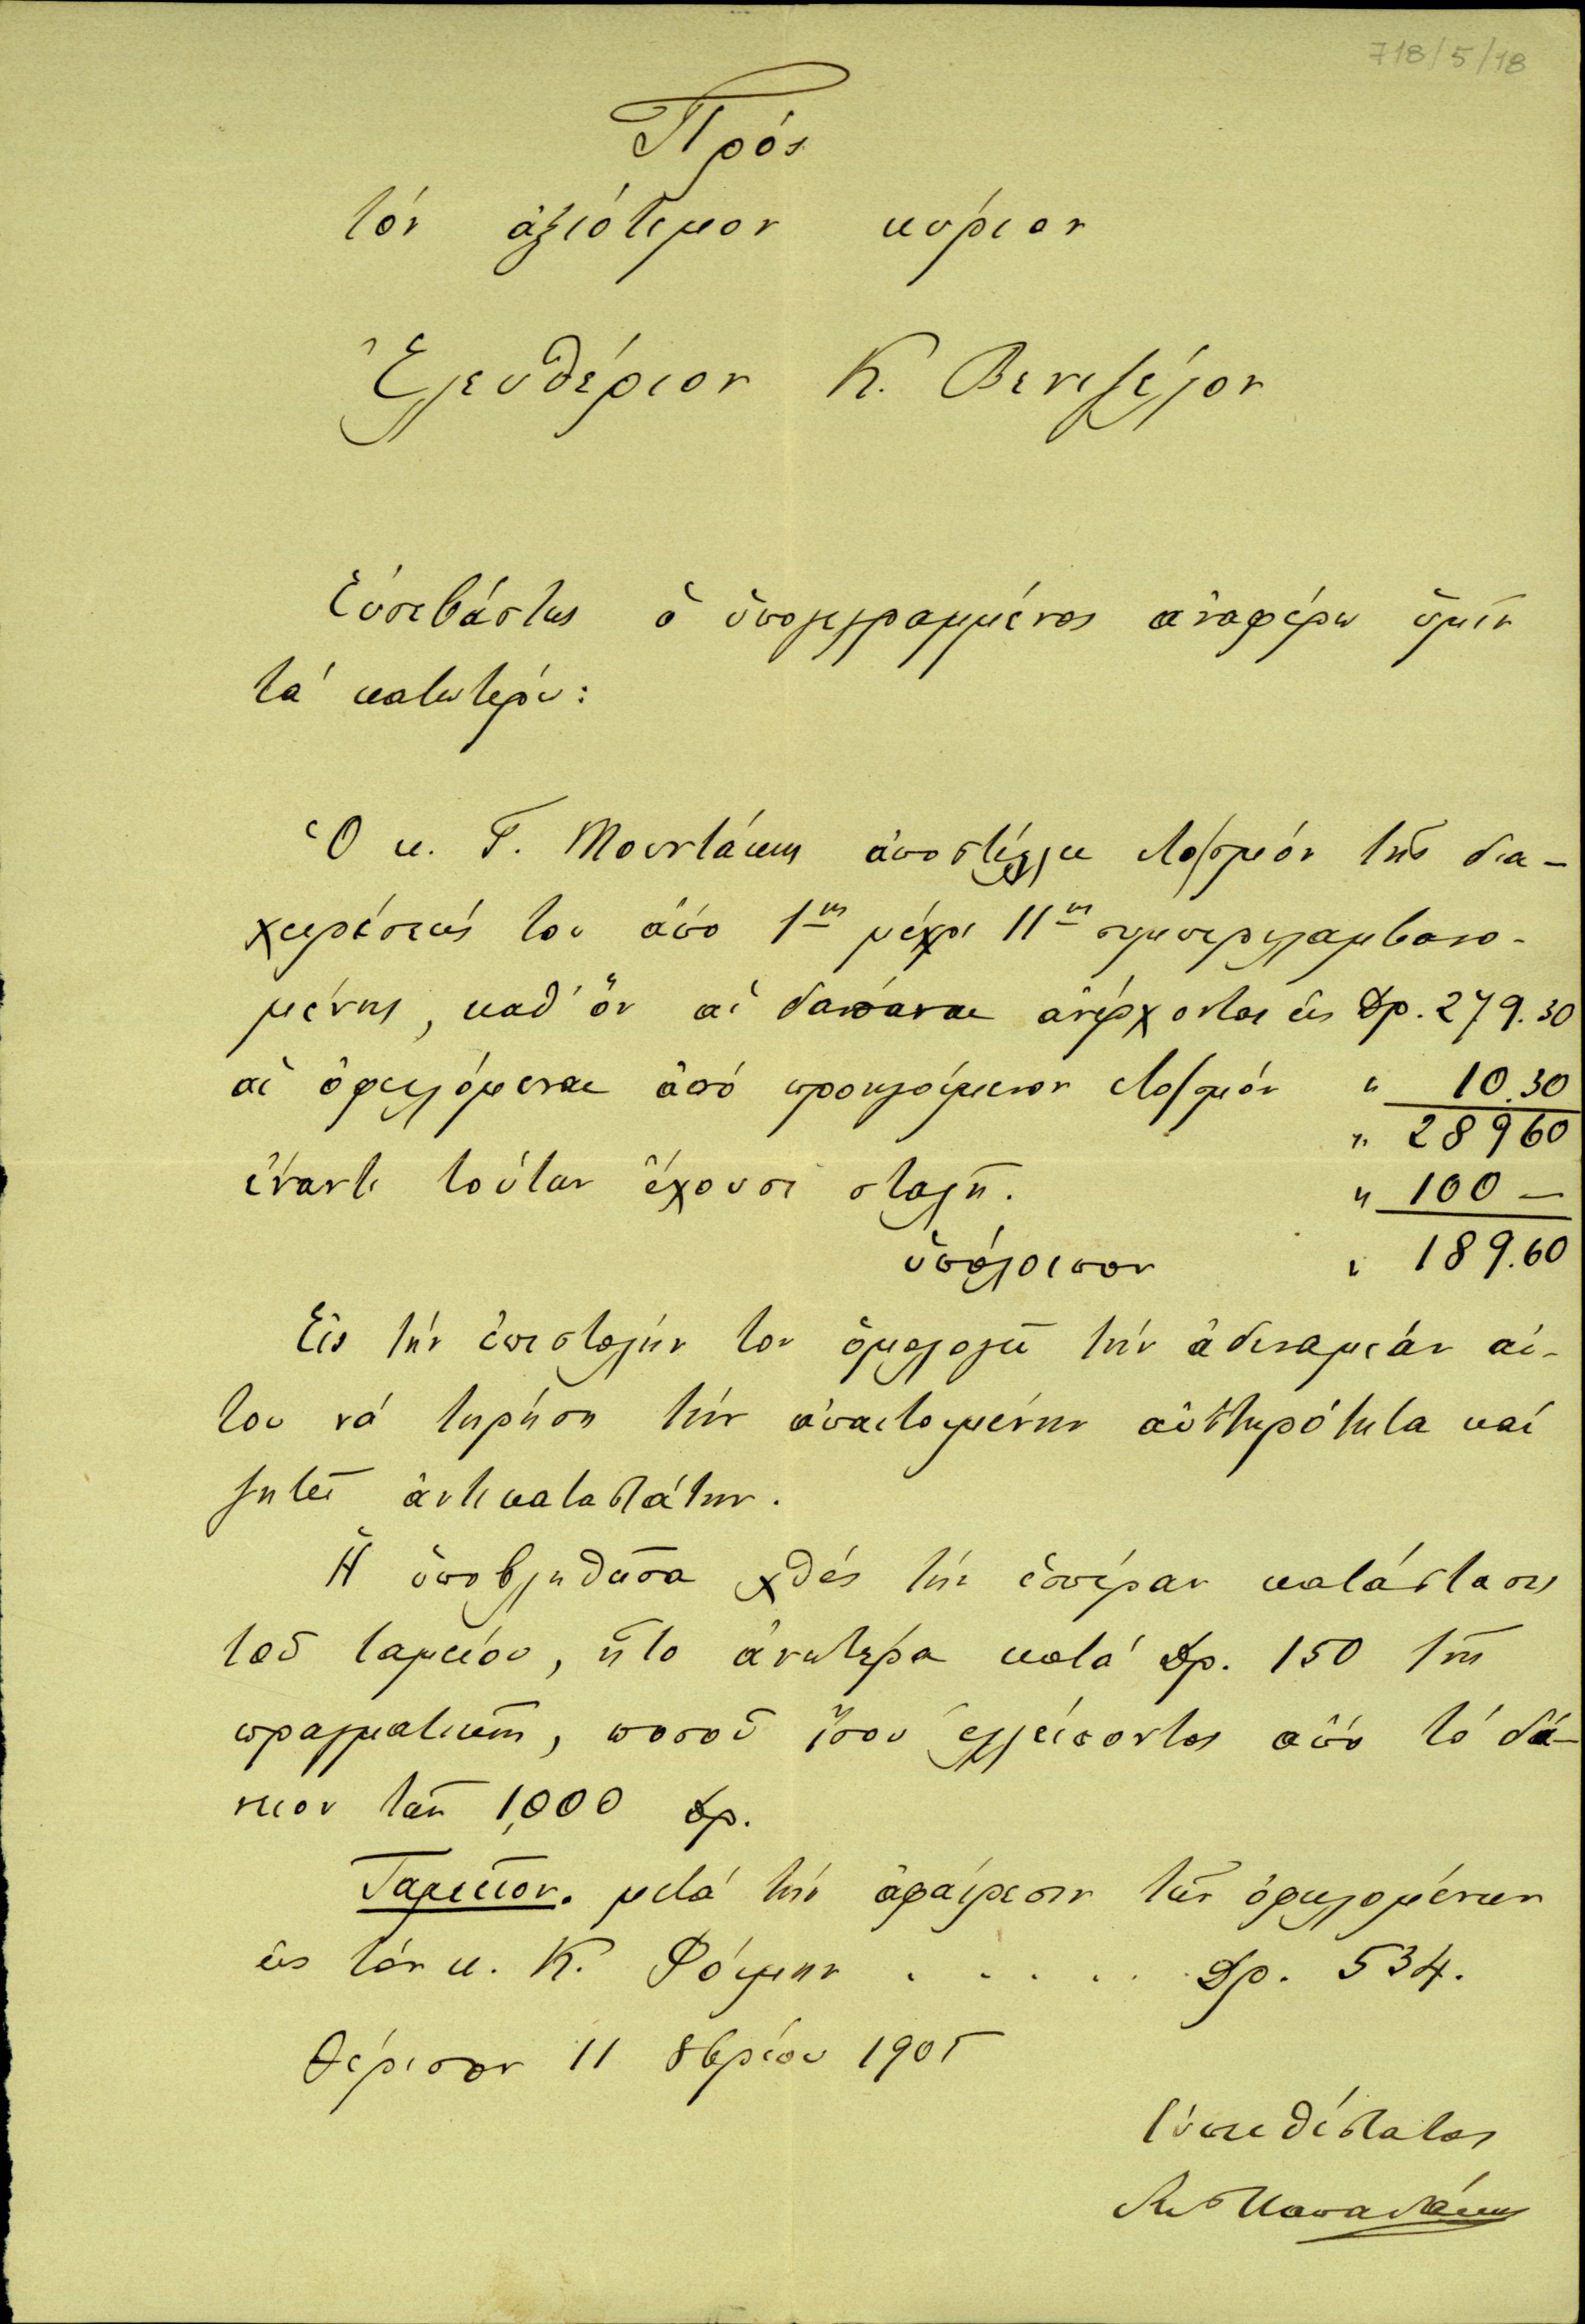 718/5/18
Πρός
τόν ἀξιότιμον κύριον
Ἐλευθέριον Κ. Βενιζέλον
Εὐσεβάστως ὁ ὑπογεγραμμένος ἀναφέρω ὑμῖν
τά κατωτέρω:
Ὁ κ. Γ. Μουντάκης ἀποστέλλει λο/σμόν τῆς δια-
χειρίσεώς του ἀπό 1ης μέχρι 11ης συμπεριλαμβανο-
μένης, καθ' ὅν αἱ δαπάναι ἀνέρχονται εἰς Δρ. 279.30
αἱ ὀφειλόμεναι ἀπό προηγούμενον λο/σμόν " 10.30
" 28960
ἔναντι τούτων ἔχουσι σταλῆ. " 100 —
ὑπόλοιπον " 189.60
Εἰς τήν ἐπιστολήν του ὁμολογεῖ τήν ἀδυναμίαν αὐ-
του νά τηρήση τήν ἀπαιτουμένην αὐστηρότητα καί
ζητεῖ ἀντικαταστάτην.
Ἡ ὑποβληθεῖσα χθές τήν ἑσπέραν κατάστασις
τοῦ ταμείου, ἦτο ἀνωτέρα κατά Δρ. 150 τῆς
πραγματικῆς, ποσοῦ ἴσου ἐλλείποντος ἀπό τό δά-
νειον τῶν 1,000 Δρ.
Ταμεῖον. μετά τήν ἀφαίρεσιν τῶν ὀφειλομένων
εἰς τόν κ. Κ. Φούμην . . . . . Δρ. 534.
Θέρισον 11 8βρίου 1905
Εὐπειθέστατος